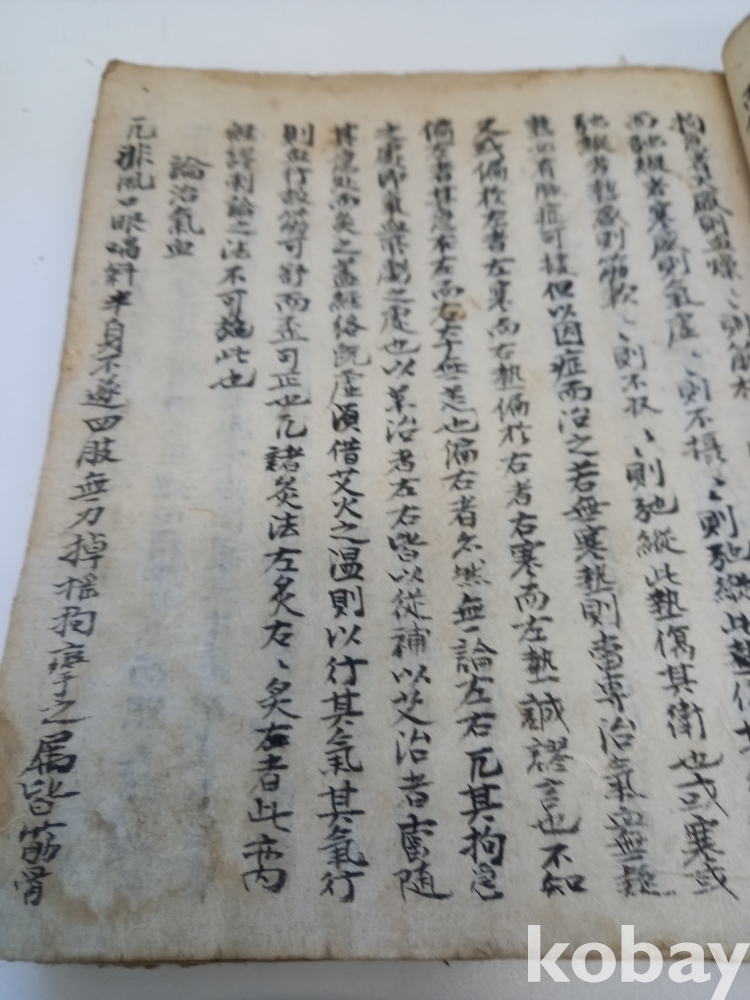 拘急者寒盛則血燥〻則筋
而馳縱者寒盛則氣虛〻則不攝〻則馳縱此
馳縱者熱盛則筋軟〻則不收〻則馳縱此熱傷其衛也或寒或
熱必有脈症可據但以因症而治之若無寒熱則當專治氣血無疑
又或偏於左者左寒而右熱偏於右者右寒而左熱誠謬言也不知
偏左者其急在左而右本無恙也偏右者亦然無論左右凡其拘急
之處即氣血所虧之處也以藥治者左右皆以從補以艾治者當隨
其急處而灸之蓋經絡既虛須借艾火之溫則以行其氣其氣行
則血行故筋可舒而歪可正也凡諸灸法左灸右〻灸左者此亦內
經謬刺論之法不可施此也
論治氣血
凡非風口眼喎斜半身不遂四肢無力掉搖拘攣之屬皆筋骨
kobay